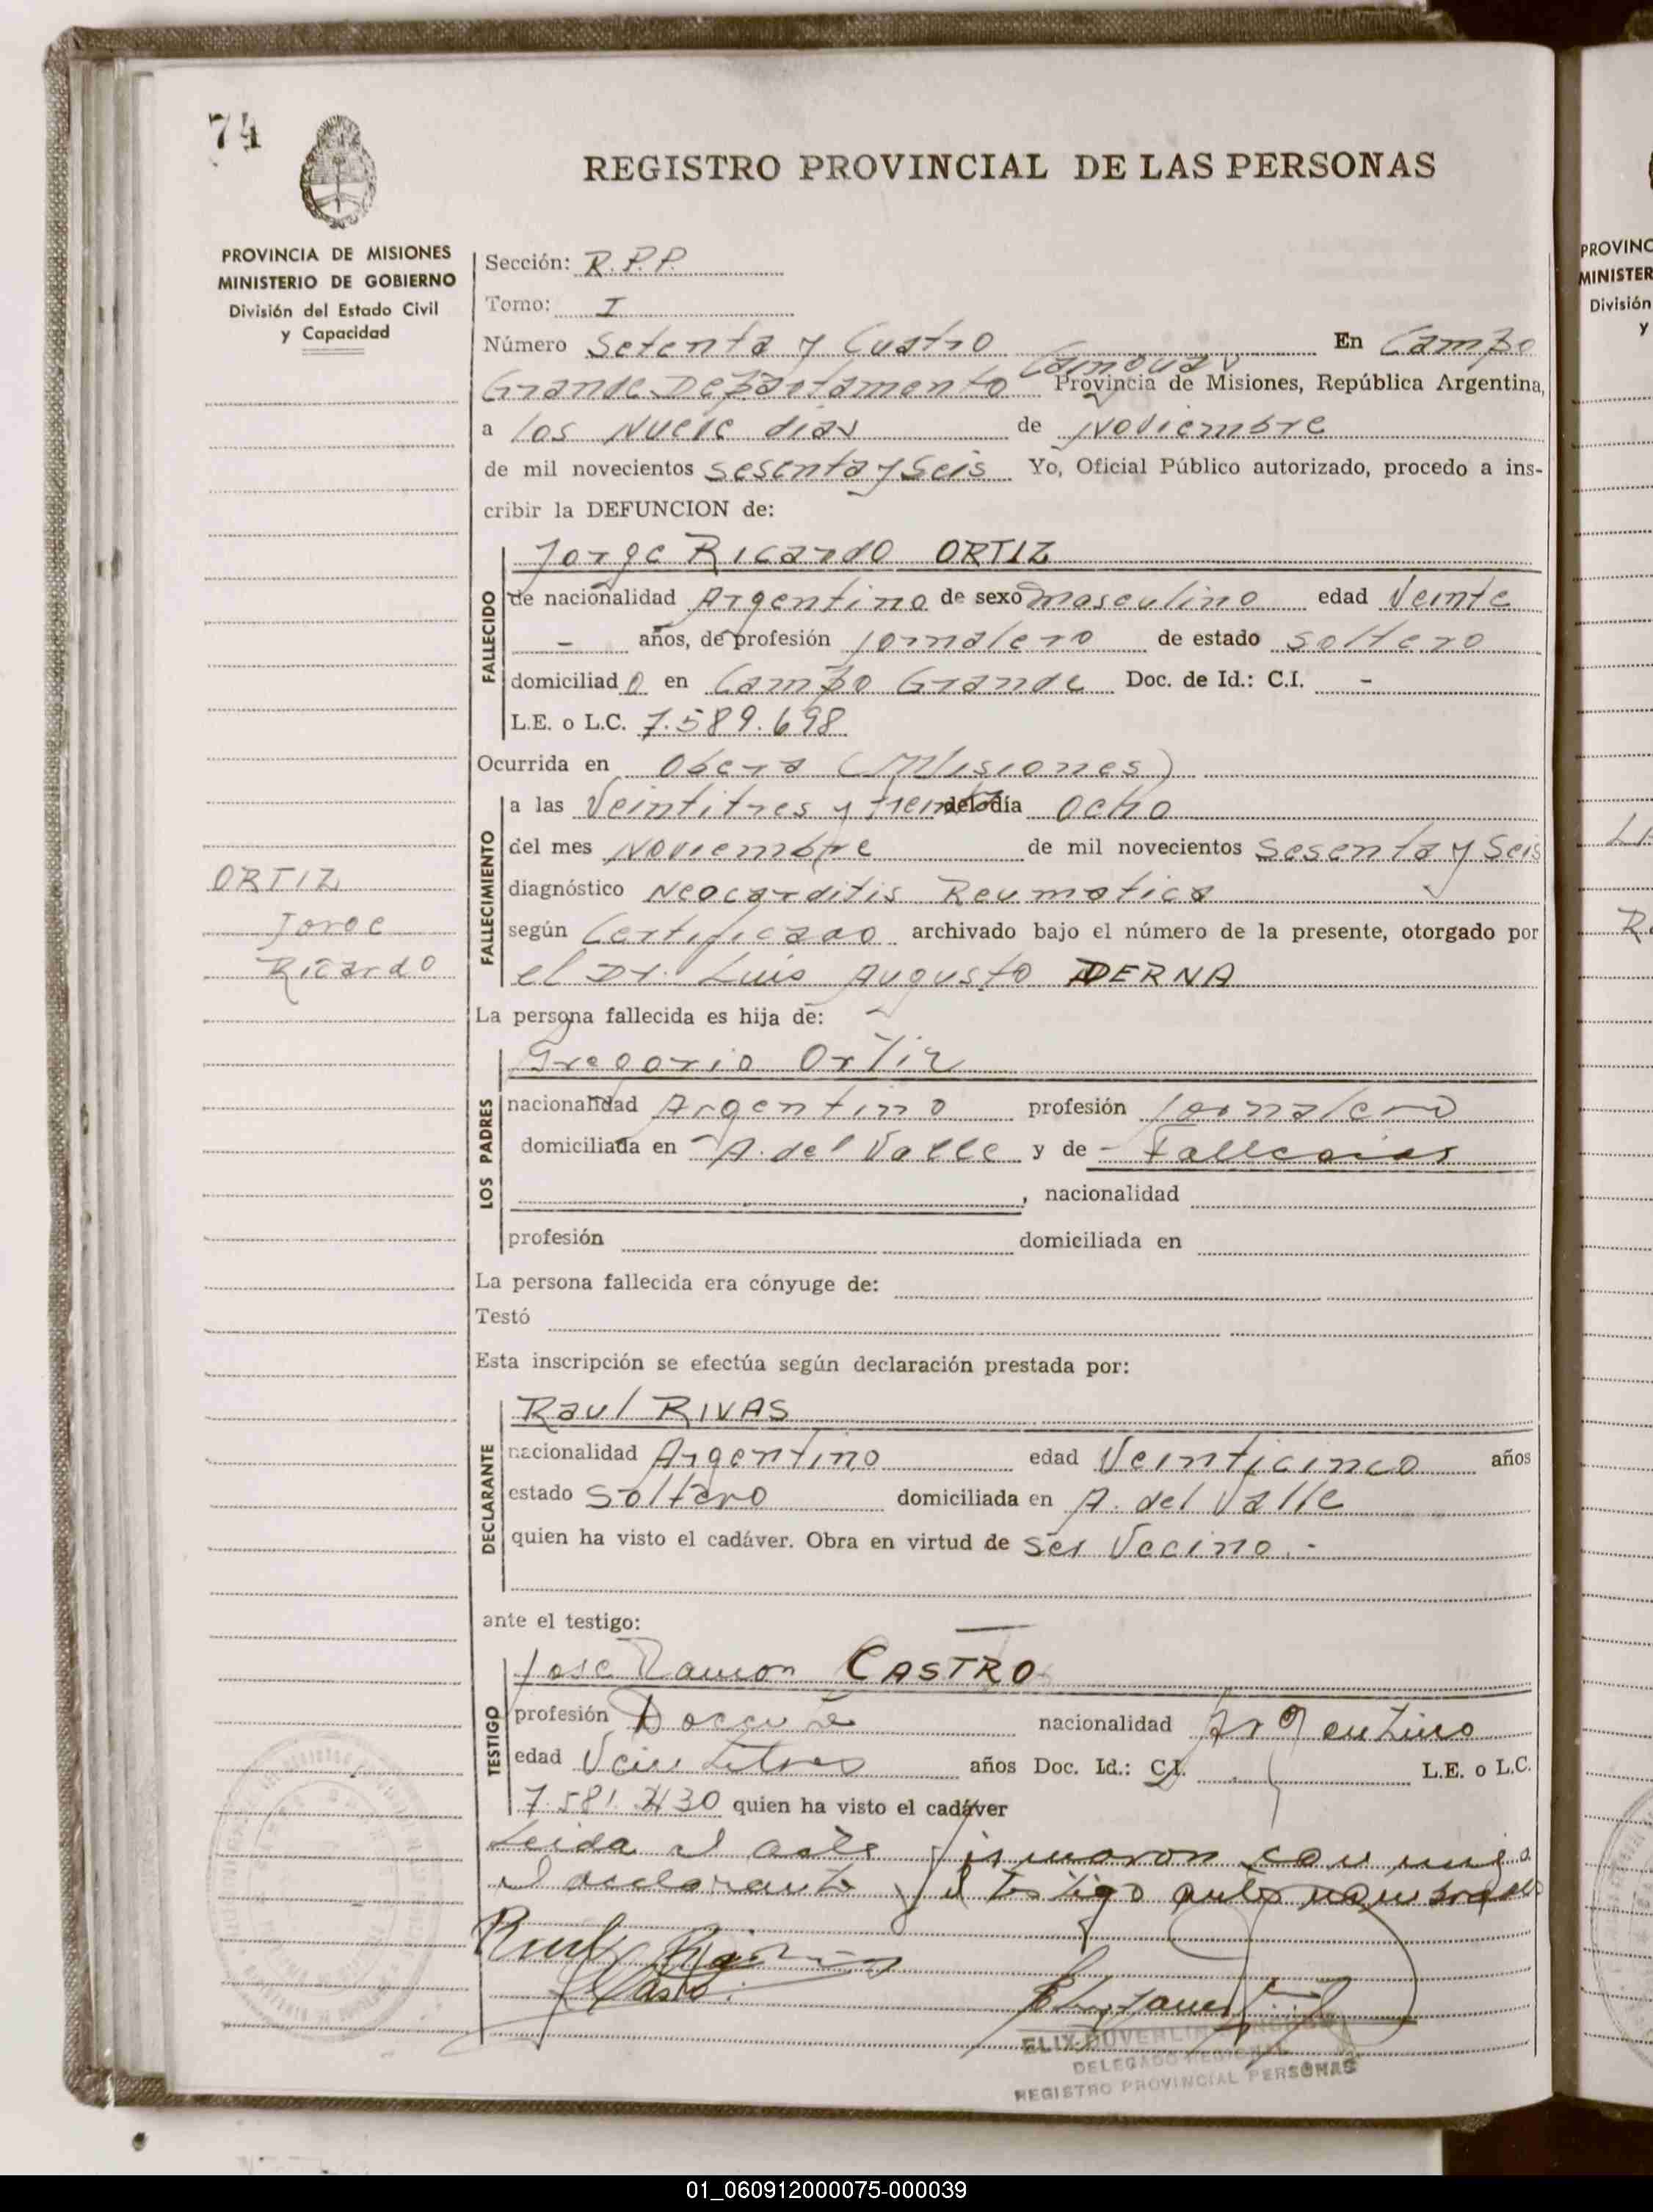 74
REGISTRO PROVINCIAL DE LAS PERSONAS
PROVINCIA DE MISIONES
MINISTERIO DE GOBIERNO
División del Estado Civil
y Capacidad
Sección: R.P.P.
Tomo: I
Número Setenta y Cuatro En Campo
Grande Departamento Cainguas Provincia de Misiones, República Argentina,
a los Nueve dias de Noviembre
de mil novecientos sesenta y Seis Yo, Oficial Público autorizado, procedo a ins-
cribir la DEFUNCION de:
FALLECIDO
Jorge Ricardo ORTIZ
de nacionalidad Argentino de sexo masculino edad Veinte
- años, de profesión Jornalero de estado soltero
domiciliado en Campo Grande Doc. de Id.: C.I. -
L.E. o L.C. 7.589.698
Ocurrida en Obera (Misiones)
FALLECIMIENTO
a las Veintitres y treinta del día ocho
del mes Noviembre de mil novecientos Sesenta y Seis
diagnóstico Neocarditis Reumatica
según Certificado archivado bajo el número de la presente, otorgado por
el Dr. Luis Augusto DERNA
ORTIZ
Jorge
Ricardo
La persona fallecida es hija de:
LOS PADRES
Gregorio Ortiz
nacionalidad Argentino profesión Jornalero
domiciliada en A. del Valle y de -
, nacionalidad
profesión domiciliada en
La persona fallecida era cónyuge de:
Testó
Esta inscripción se efectúa según declaración prestada por:
DECLARANTE
Raul RIVAS
nacionalidad Argentino edad Veinticinco años
estado Soltero domiciliada en A. del Valle
quien ha visto el cadáver. Obra en virtud de ser Vecino.-
ante el testigo:
TESTIGO
Jose Ramon CASTRO
profesión Docente nacionalidad Argentino
edad Veintitres años Doc. Id.: C.I. L.E. o L.C.
7.581. quien ha visto el cadáver
Leida el acta firmaron conmigo
el declarante y el testigo antes nombrado
DELEGADO REGIONAL
REGISTRO PROVINCIAL PERSONAS
PROVINC
MINISTER
División
y
01_060912000075-000039